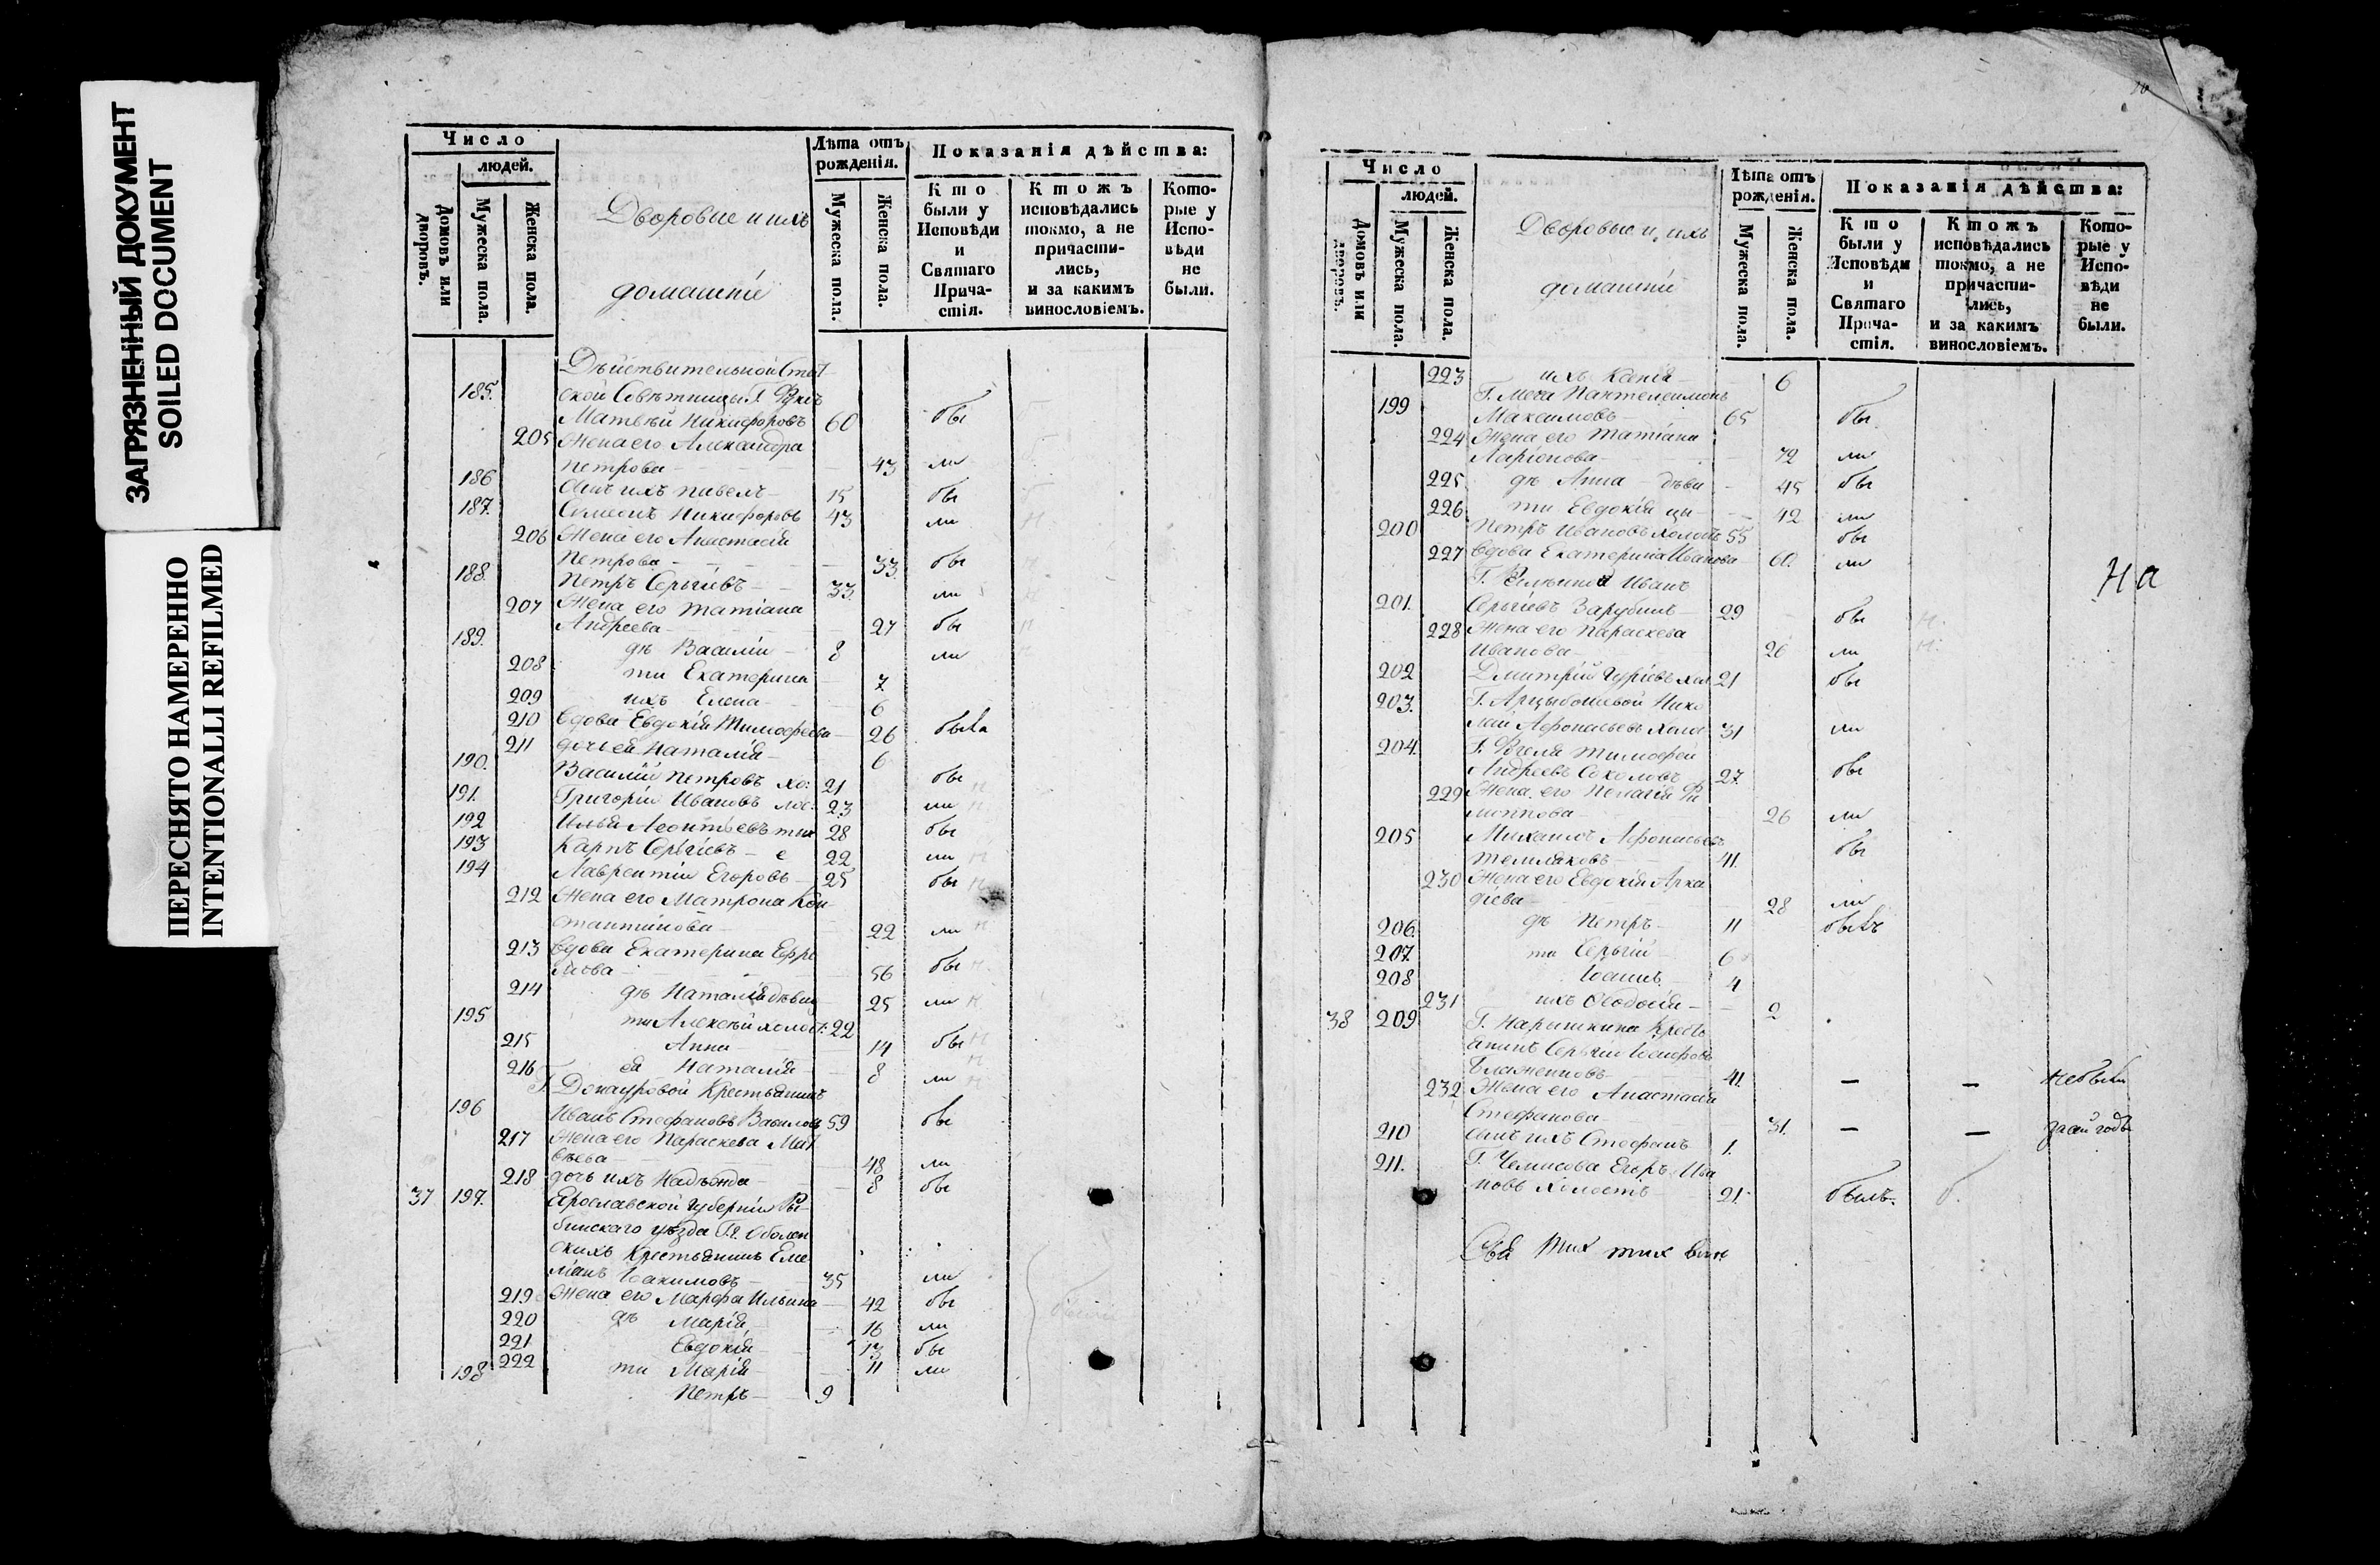 ЗАГРЯЗНЕННЫЙ ДОКУМЕНТ
SOILED DOCUMENT
ПЕРЕСНЯТО НАМЕРЕННО
INTENTIONALLI REFILMED
Число
людей.
Домовъ или дворовъ.
Мужеска пола.
Женска пола.
Дворовые и ихъ
домашніи
Лѣта отъ рожденія.
Мужеска пола.
Женска пола.
Показанія дѣйства:
Кто были у Исповѣди и Святаго Прича-стія.
Ктожъ исповѣдались токмо, а не причасти-лись, и за какимъ винословіемъ.
Кото-рые у Испо-вѣди не были.
Дѣйствительной Стат
185. ской Совѣтницы Г.
Матвѣй Никифоровъ 60 бы
205 Жена его Александра
Петрова 43 ли
186 Сынъ ихъ Павелъ 15 бы
187. Симеонъ Никифоровъ 43 ли
206 Жена его Анастасія
Петрова 33 бы
188. Петръ Сергіевъ 33. ли
207 Жена его Татіана
Андреева 27 бы
189. дѣ Василій 8 ли
208 ти Екатерина 7
209 ихъ Елена 6
210 Вдова Евдокія Тимофеева 26 была
211 дочь ея Наталія 6
190. Василій Петровъ хо: 21 бы
191. Григорій Ивановъ лос: 23 ли
192 Илья Леонтьевъ ты 28 бы
193 Карпъ Сергіевъ е 22 ли
194 Лаврентій Егоровъ 25 бы
212 Жена его Матрона Кон
стантинова 22 ли
213 Вдова Екатерина Ефре
мова 56 бы
214 дѣ Наталія дѣвиц 25 ли
195 ти Алексѣй холост: 22
215 Анна 14 бы
216 ея Наталія 8 ли
Г. Докауровой Крестьянинъ
196 Иванъ Стефановъ Василовъ 59 бы
217 Жена его Параскева Мат
вѣева 48 ли
218 дочь ихъ Надѣжда 8 бы
37 197. Ярославской Губерніи Ры
бинскаго уѣзда Г.г. Оболен
скихъ Крестьянинъ Еме
ліанъ Іоакимовъ 35 ли
219 Жена его Марфа Ильина 42 бы
220 дѣ Марія 16 ли
221 Евдокія 13 бы
222 ти Марія 11 ли
198 Петръ 9
Число
людей.
Домовъ или дворовъ.
Мужеска пола.
Женска пола.
Дворовые и ихъ
домашніи
Лѣта отъ рожденія.
Мужеска пола.
Женска пола.
Показанія дѣйства:
Кто были у Исповѣди и Святаго Прича-стія.
Ктожъ исповѣдались токмо, а не причасти-лись, и за какимъ винословіемъ.
Кото-рые у Испо-вѣди не были.
223 ихъ Ксенія 6
Г. Меча Пантелеимонъ
199 Максимовъ 65 бы
224 Жена его Татіана
Ларіонова 72 ли
225 дѣ Анна дѣви 45 бы
226 ти Евдокія цы 42 ли
200 Петръ Ивановъ холост 55 бы
227 Вдова Екатерина Иванова 60. ли
Иванъ
201. Сергіевъ Зарубинъ 29 бы
228 Жена его Параскева
Иванова 26 ли
202 Дмитрій Гуріевъ хол 21 бы
203. Г. Арцыбошевой Нико
лай Афонасьевъ Холос 31 ли
204. Тимофей
Андреевъ Соколовъ 27. бы
229 Жена его Пелагія Фи
липпова 26 ли
205 Михаилъ Афонасьевъ
Темляковъ 41. бы
230 Жена его Евдокія Арка
діева 28 ли
206 дѣ Петръ 11 былъ
207. ти Сергій 6
208 Іоаннъ 4
231 ихъ Ѳеодосія 2
38 209 Г. Нарышкина Кресть
янинъ Сергій
Блаженновъ 41. — — небыли
232 Жена его Анастасія
Стефанова 31. — — за сей годъ
210 Сынъ ихъ Стефанъ 1.
211. Г. Чемисова Егоръ Ива
новъ Холостъ 21. былъ.
На